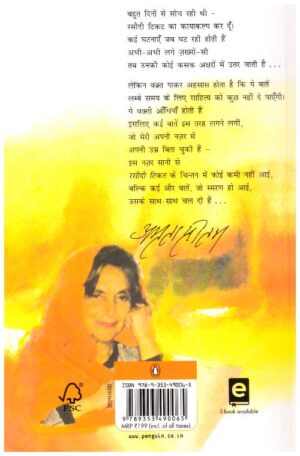 बहुत दिनों से सोच रही थी -
रसीदी टिकट का कायाकल्प कर दूँ।
कई घटनाएँ जब घट रही होती हैं
अभी-अभी लगे ज़ख़्मों-सी
तब उनकी कोई कसक अक्षरों में उतर जाती है ...
लेकिन वक़्त पाकर अहसास होता है कि ये बातें
लम्बे समय के लिए साहित्य को कुछ नहीं दे पाएँगी।
ये वक़्ती आँधियाँ होती हैं
इसलिए कई बातें इस तरह लगने लगीं,
जो मेरी अपनी नज़र में
अपनी उम्र बिता चुकी हैं -
इस नज़र सानी से
रसीदी टिकट के चिन्तन में कोई कमी नहीं आई,
बल्कि कई और बातें, जो स्मरण हो आईं,
उसके साथ-साथ चल दी हैं ...
FSC
ISBN 978-9-353-49006-5
9 789353 490065
MRP ₹199 (incl. of all taxes)
www.penguin.co.in
e
E-book available